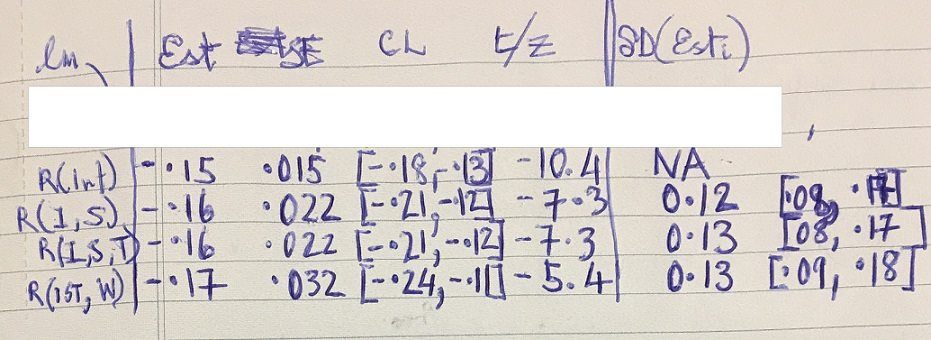 lm Est SE CL t/z SD(Esti)
R(Int) -.15 .015 [-.18, -.13] -10.4 NA
R(I,S) -.16 .022 [-.21, -.12] -7.3 0.12 [.08, .17]
R(I,S,T) -.16 .022 [-.21, -.12] -7.3 0.13 [.08, .17]
R(IST, W) -.17 .032 [-.24, -.11] -5.4 0.13 [.09, .18]